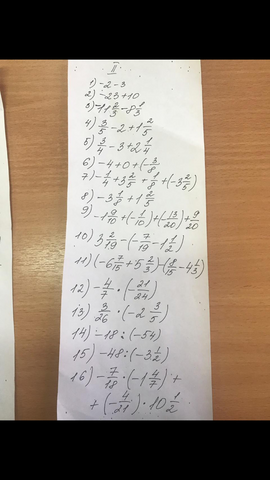 II
1) -2-3
2) -23+10
3) -11 2/3 - 8 1/3
4) 3/5 - 2 + 1 2/5
5) 3/4 - 3 + 2 1/4
6) -4+0+(-3/8
7) -1/4 + 3 2/5 + 1/8 + (-3 2/5)
8) -3 1/8 + 1 2/5
9) -1 9/10 + (-1/10) + (-13/20) + 9/20
10) 3 2/19 - (-7/19 - 1 1/2)
11) (-6 7/15 + 5 2/3) - (8/15 - 4 1/3)
12) -4/7 · (-21/24)
13) 3/26 · (-2 3/5)
14) -18 : (-54)
15) -48 : (-3 1/2)
16) -7/18 · (-1 4/7) +
+ (-4/21) · 10 1/2